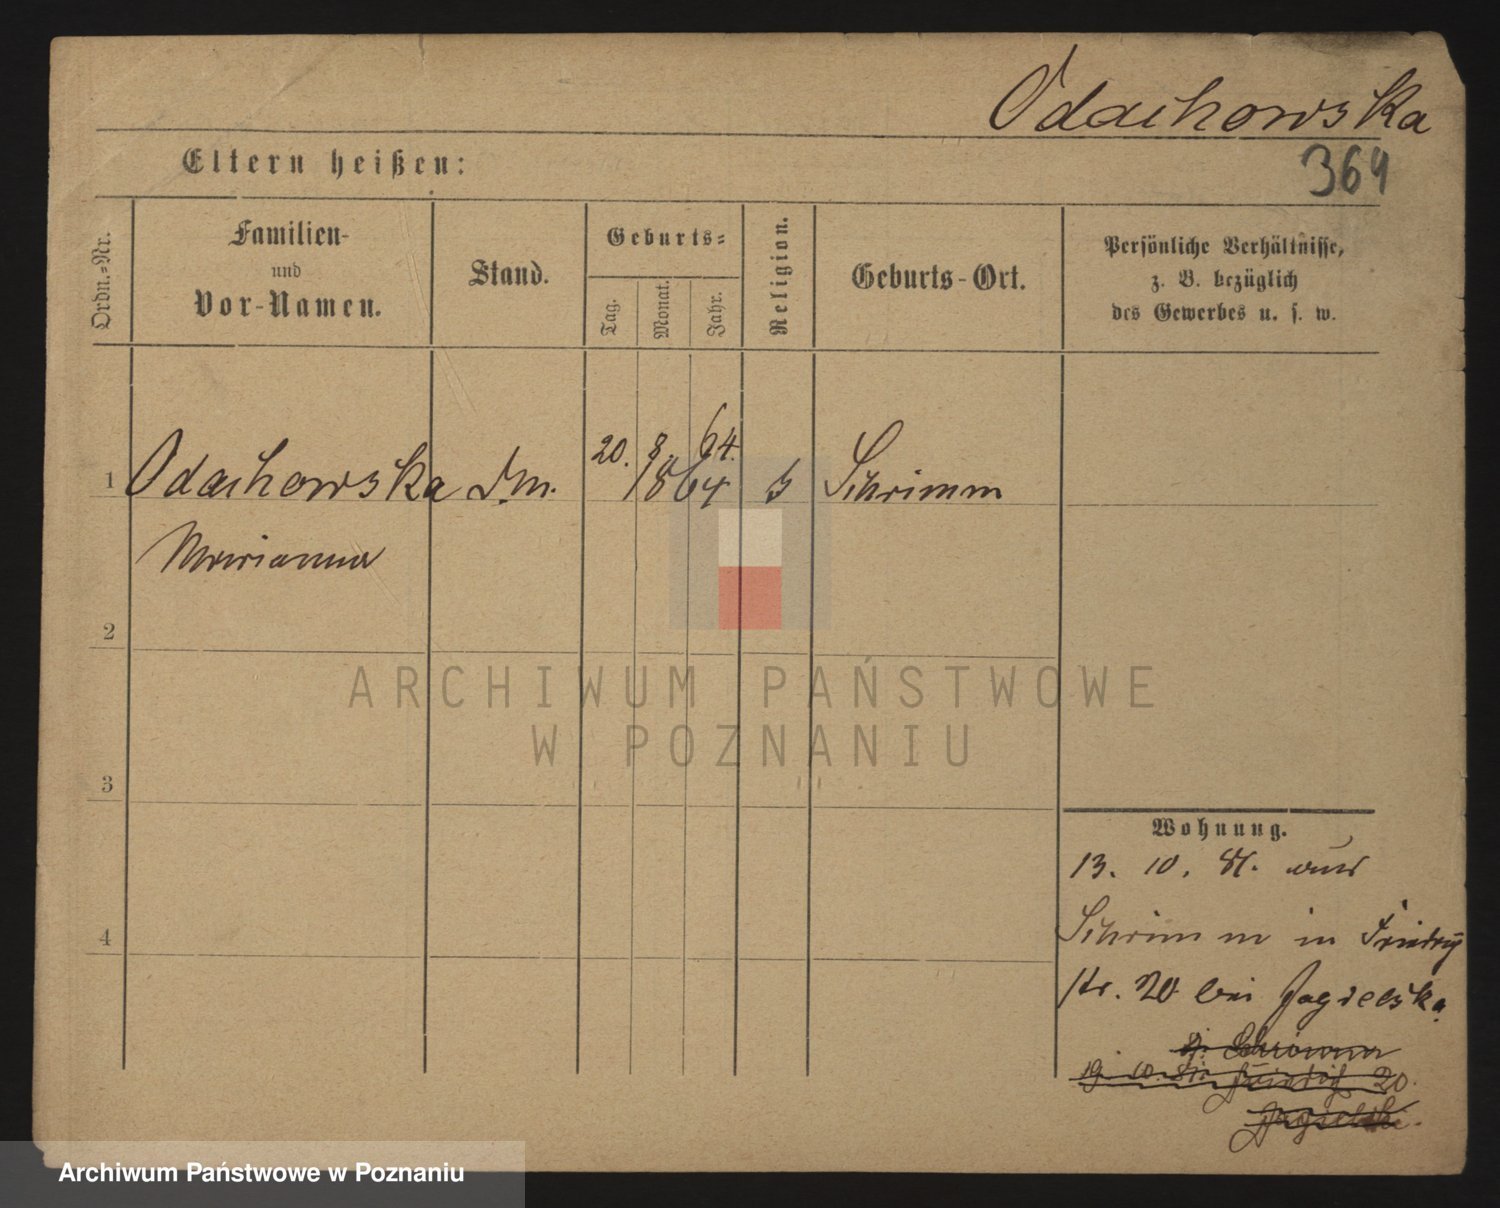 Odachowska
364
Eltern heißen:
Ordn.=Nr.
Familien-
und
Vor-Namen.
Stand.
Geburts=
Tag.
Monat.
Jahr.
Religion.
Geburts-Ort.
Persönliche Verhältnisse,
z. B. bezüglich
des Gewerbes u. s. w.
20. 8. 64.
1 Odachowska 1864 Schrimm
Marianna
2
3
4
Wohnung.
13. 10. 81. aus
Schrimm in Friedrich
str. 20 bei Jagielska
20.
ARCHIWUM PAŃSTWOWE
W POZNANIU
Archiwum Państwowe w Poznaniu